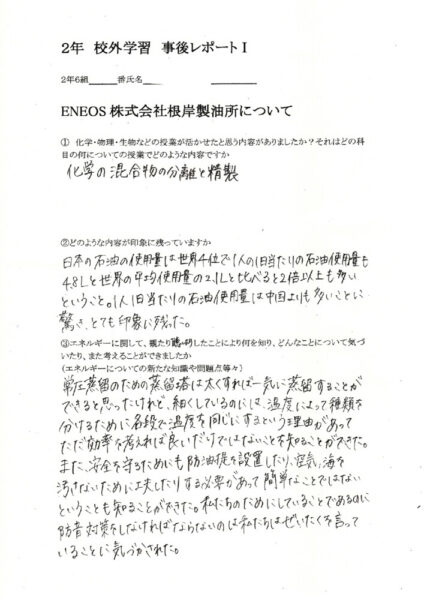 2年 校外学習 事後レポートⅠ
2年6組 番氏名
ENEOS 株式会社根岸製油所について
① 化学・物理・生物などの授業が活かせたと思う内容がありましたか?それはどの科
目の何についての授業でどのような内容ですか
化学の混合物の分離と精製
②どのような内容が印象に残っていますか
日本の石油の使用量は世界4位で1人の1日当たりの石油使用量も
4.8Lと世界の平均使用量の2.1Lと比べると2倍以上も多い
ということ。1人1日当たりの石油使用量は中国よりも多いことに
驚き、とても印象に残った。
③エネルギーに関して、観たり聴いたりしたことにより何を知り、どんなことについて気づ
いたり、また考えることができましたか
(エネルギーについての新たな知識や問題点等々)
常圧蒸留のための蒸留塔は太くすれば一気に蒸留することが
できると思ったけれど、細くしているのには、温度によって種類を
分けるために各段で温度を同じにするという理由があって
ただ効率を考えれば良いだけではないことを知ることができた。
また、安全を守るためにも防油堤を設置したり、空気、海を
汚さないために工夫したりする必要があって簡単なことではない
ということも知ることができた。私たちのためにしていることであるのに
防音対策をしなければならないのは私たちはぜいたくを言って
いることに気づかされた。